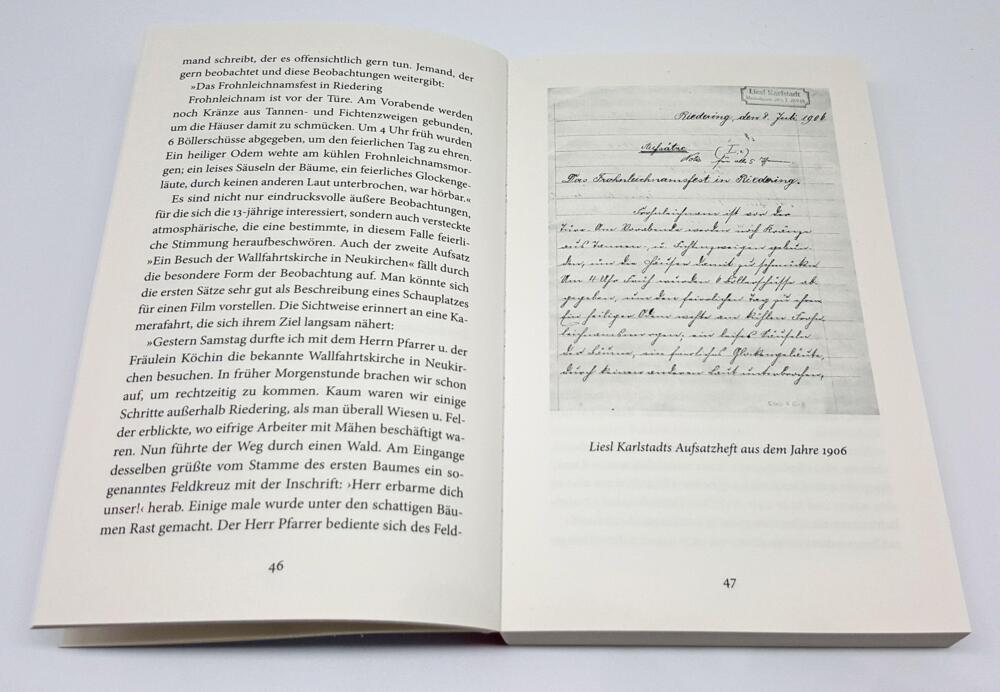 mand schreibt, der es offensichtlich gern tun. Jemand, der
gern beobachtet und diese Beobachtungen weitergibt:
»Das Frohnleichnamsfest in Riedering
Frohnleichnam ist vor der Türe. Am Vorabende werden
noch Kränze aus Tannen- und Fichtenzweigen gebunden,
um die Häuser damit zu schmücken. Um 4 Uhr früh wurden
6 Böllerschüsse abgegeben, um den feierlichen Tag zu ehren.
Ein heiliger Odem wehte am kühlen Frohnleichnamsmor-
gen; ein leises Säuseln der Bäume, ein feierliches Glockenge-
läute, durch keinen anderen Laut unterbrochen, war hörbar.«
Es sind nicht nur eindrucksvolle äußere Beobachtungen,
für die sich die 13-jährige interessiert, sondern auch versteckte
atmosphärische, die eine bestimmte, in diesem Falle feierli-
che Stimmung heraufbeschwören. Auch der zweite Aufsatz
»Ein Besuch der Wallfahrtskirche in Neukirchen« fällt durch
die besondere Form der Beobachtung auf. Man könnte sich
die ersten Sätze sehr gut als Beschreibung eines Schauplatzes
für einen Film vorstellen. Die Sichtweise erinnert an eine Ka-
merafahrt, die sich ihrem Ziel langsam nähert:
»Gestern Samstag durfte ich mit dem Herrn Pfarrer u. der
Fräulein Köchin die bekannte Wallfahrtskirche in Neukir-
chen besuchen. In früher Morgenstunde brachen wir schon
auf, um rechtzeitig zu kommen. Kaum waren wir einige
Schritte außerhalb Riedering, als man überall Wiesen u. Fel-
der erblickte, wo eifrige Arbeiter mit Mähen beschäftigt wa-
ren. Nun führte der Weg durch einen Wald. Am Eingange
desselben grüßte vom Stamme des ersten Baumes ein so-
genanntes Feldkreuz mit der Inschrift: ›Herr erbarme dich
unser!‹ herab. Einige male wurde unter den schattigen Bäu-
men Rast gemacht. Der Herr Pfarrer bediente sich des Feld-
46
Liesl Karlstadt
Riedering, den 8. Juli 1906
Aufsätze (I.)
Note für alle 5
Das Frohnleichnamsfest in Riedering.
Frohnleichnam ist vor der
Türe. Am Vorabende werden noch Kränze
aus Tannen- u. Fichtenzweigen gebun-
den, um die Häuser damit zu schmücken
Um 4 Uhr Früh wurden 6 Böllerschüsse ab-
gegeben, um den feierlichen Tag zu ehren
Ein heiliger Odem wehte am kühlen Frohn-
leichnamsmorgen; ein leises Säuseln
der Bäume, ein feierliches Glockengeläute,
durch keinen anderen Laut unterbrochen,
Liesl Karlstadts Aufsatzheft aus dem Jahre 1906
47